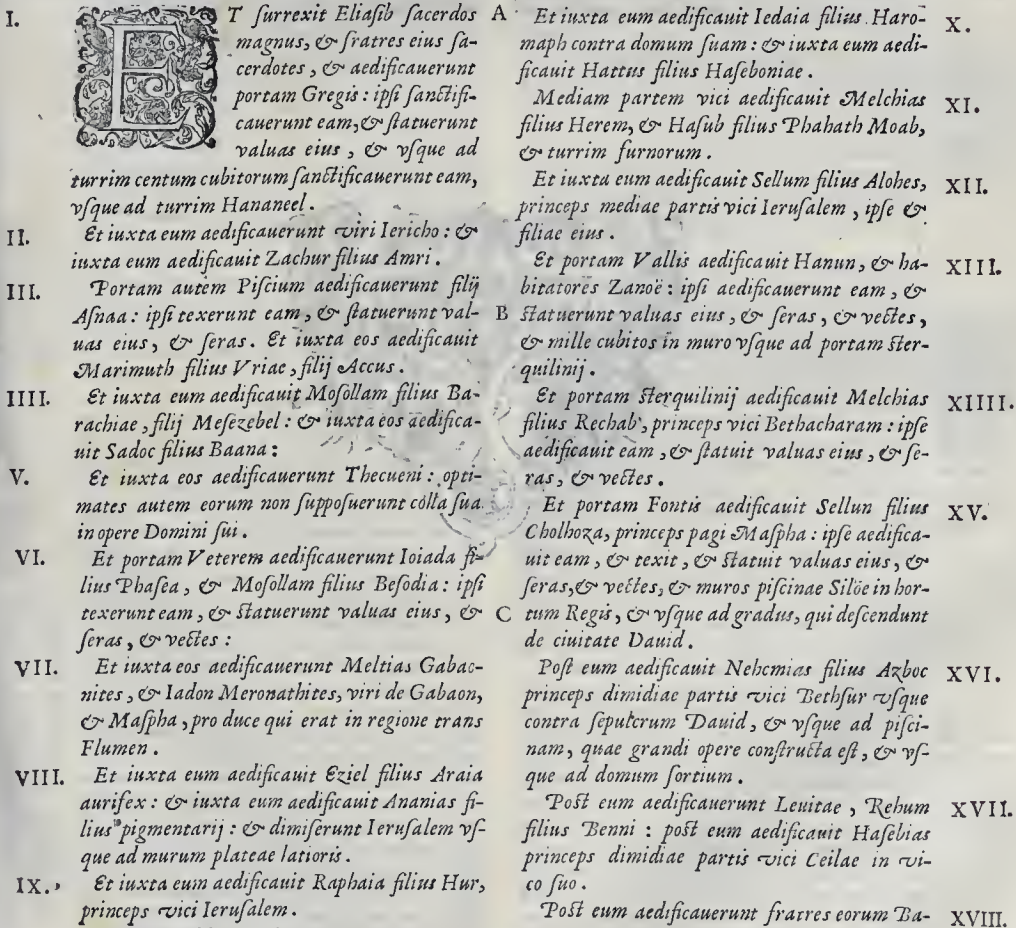 I. ET surrexit Eliasib sacerdos
magnus, & fratres eius sa-
cerdotes, & aedificauerunt
portam Gregis: ipsi sanctifi-
cauerunt eam, & statuerunt
valuas eius, & vsque ad
turrim centum cubitorum sanctificauerunt eam,
vsque ad turrim Hananeel.
II. Et iuxta eum aedificauerunt viri Iericho: &
iuxta eum aedificauit Zachur filius Amri.
III. Portam autem Piscium aedificauerunt filij
Asnaa: ipsi texerunt eam, & statuerunt val-
uas eius, & seras. Et iuxta eos aedificauit
Marimuth filius Vriae, filij Accus.
IIII. Et iuxta eum aedificauit Mosollam filius Ba-
rachiae, filij Mesezebel: & iuxta eos aedifica-
uit Sadoc filius Baana:
V. Et iuxta eos aedificauerunt Thecueni: opti-
mates autem eorum non supposuerunt colla sua
in opere Domini sui.
VI. Et portam Veterem aedificauerunt Ioiada fi-
lius Phasea, & Mosollam filius Besodia: ipsi
texerunt eam, & statuerunt valuas eius, &
seras, & vectes:
VII. Et iuxta eos aedificauerunt Meltias Gabao-
nites, & Iadon Meronathites, viri de Gabaon,
& Maspha, pro duce qui erat in regione trans
Flumen.
VIII. Et iuxta eum aedificauit Eziel filius Araia
aurifex: & iuxta eum aedificauit Ananias fi-
lius pigmentarij: & dimiserunt Ierusalem vs-
que ad murum plateae latioris.
IX. Et iuxta eum aedificauit Raphaia filius Hur,
princeps vici Ierusalem.
A
B
C
Et iuxta eum aedificauit Iedaia filius Haro- X.
maph contra domum suam: & iuxta eum aedi-
ficauit Hattus filius Haseboniae.
Mediam partem vici aedificauit Melchias XI.
filius Herem, & Hasub filius Phahath Moab,
& turrim furnorum.
Et iuxta eum aedificauit Sellum filius Alohes, XII.
princeps mediae partis vici Ierusalem, ipse &
filiae eius.
Et portam Vallis aedificauit Hanun, & ha- XIII.
bitatores Zanoë: ipsi aedificauerunt eam, &
statuerunt valuas eius, & seras, & vectes,
& mille cubitos in muro vsque ad portam ster-
quilinij.
Et portam sterquilinij aedificauit Melchias XIIII.
filius Rechab, princeps vici Bethacharam: ipse
aedificauit eam, & statuit valuas eius, & se-
ras, & vectes.
Et portam Fontis aedificauit Sellun filius XV.
Cholhoza, princeps pagi Maspha: ipse aedifica-
uit eam, & texit, & statuit valuas eius, &
seras, & vectes, & muros piscinae Siloë in hor-
tum Regis, & vsque ad gradus, qui descendunt
de ciuitate Dauid.
Post eum aedificauit Nehemias filius Azboc XVI.
princeps dimidiae partis vici Bethsur vsque
contra sepulcrum Dauid, & vsque ad pisci-
nam, quae grandi opere constructa est, & vs-
que ad domum fortium.
Post eum aedificauerunt Leuitae, Rehum XVII.
filius Benni: post eum aedificauit Hasebias
princeps dimidiae partis vici Ceilae in vi-
co suo.
Post eum aedificauerunt fratres eorum Ba- XVIII.